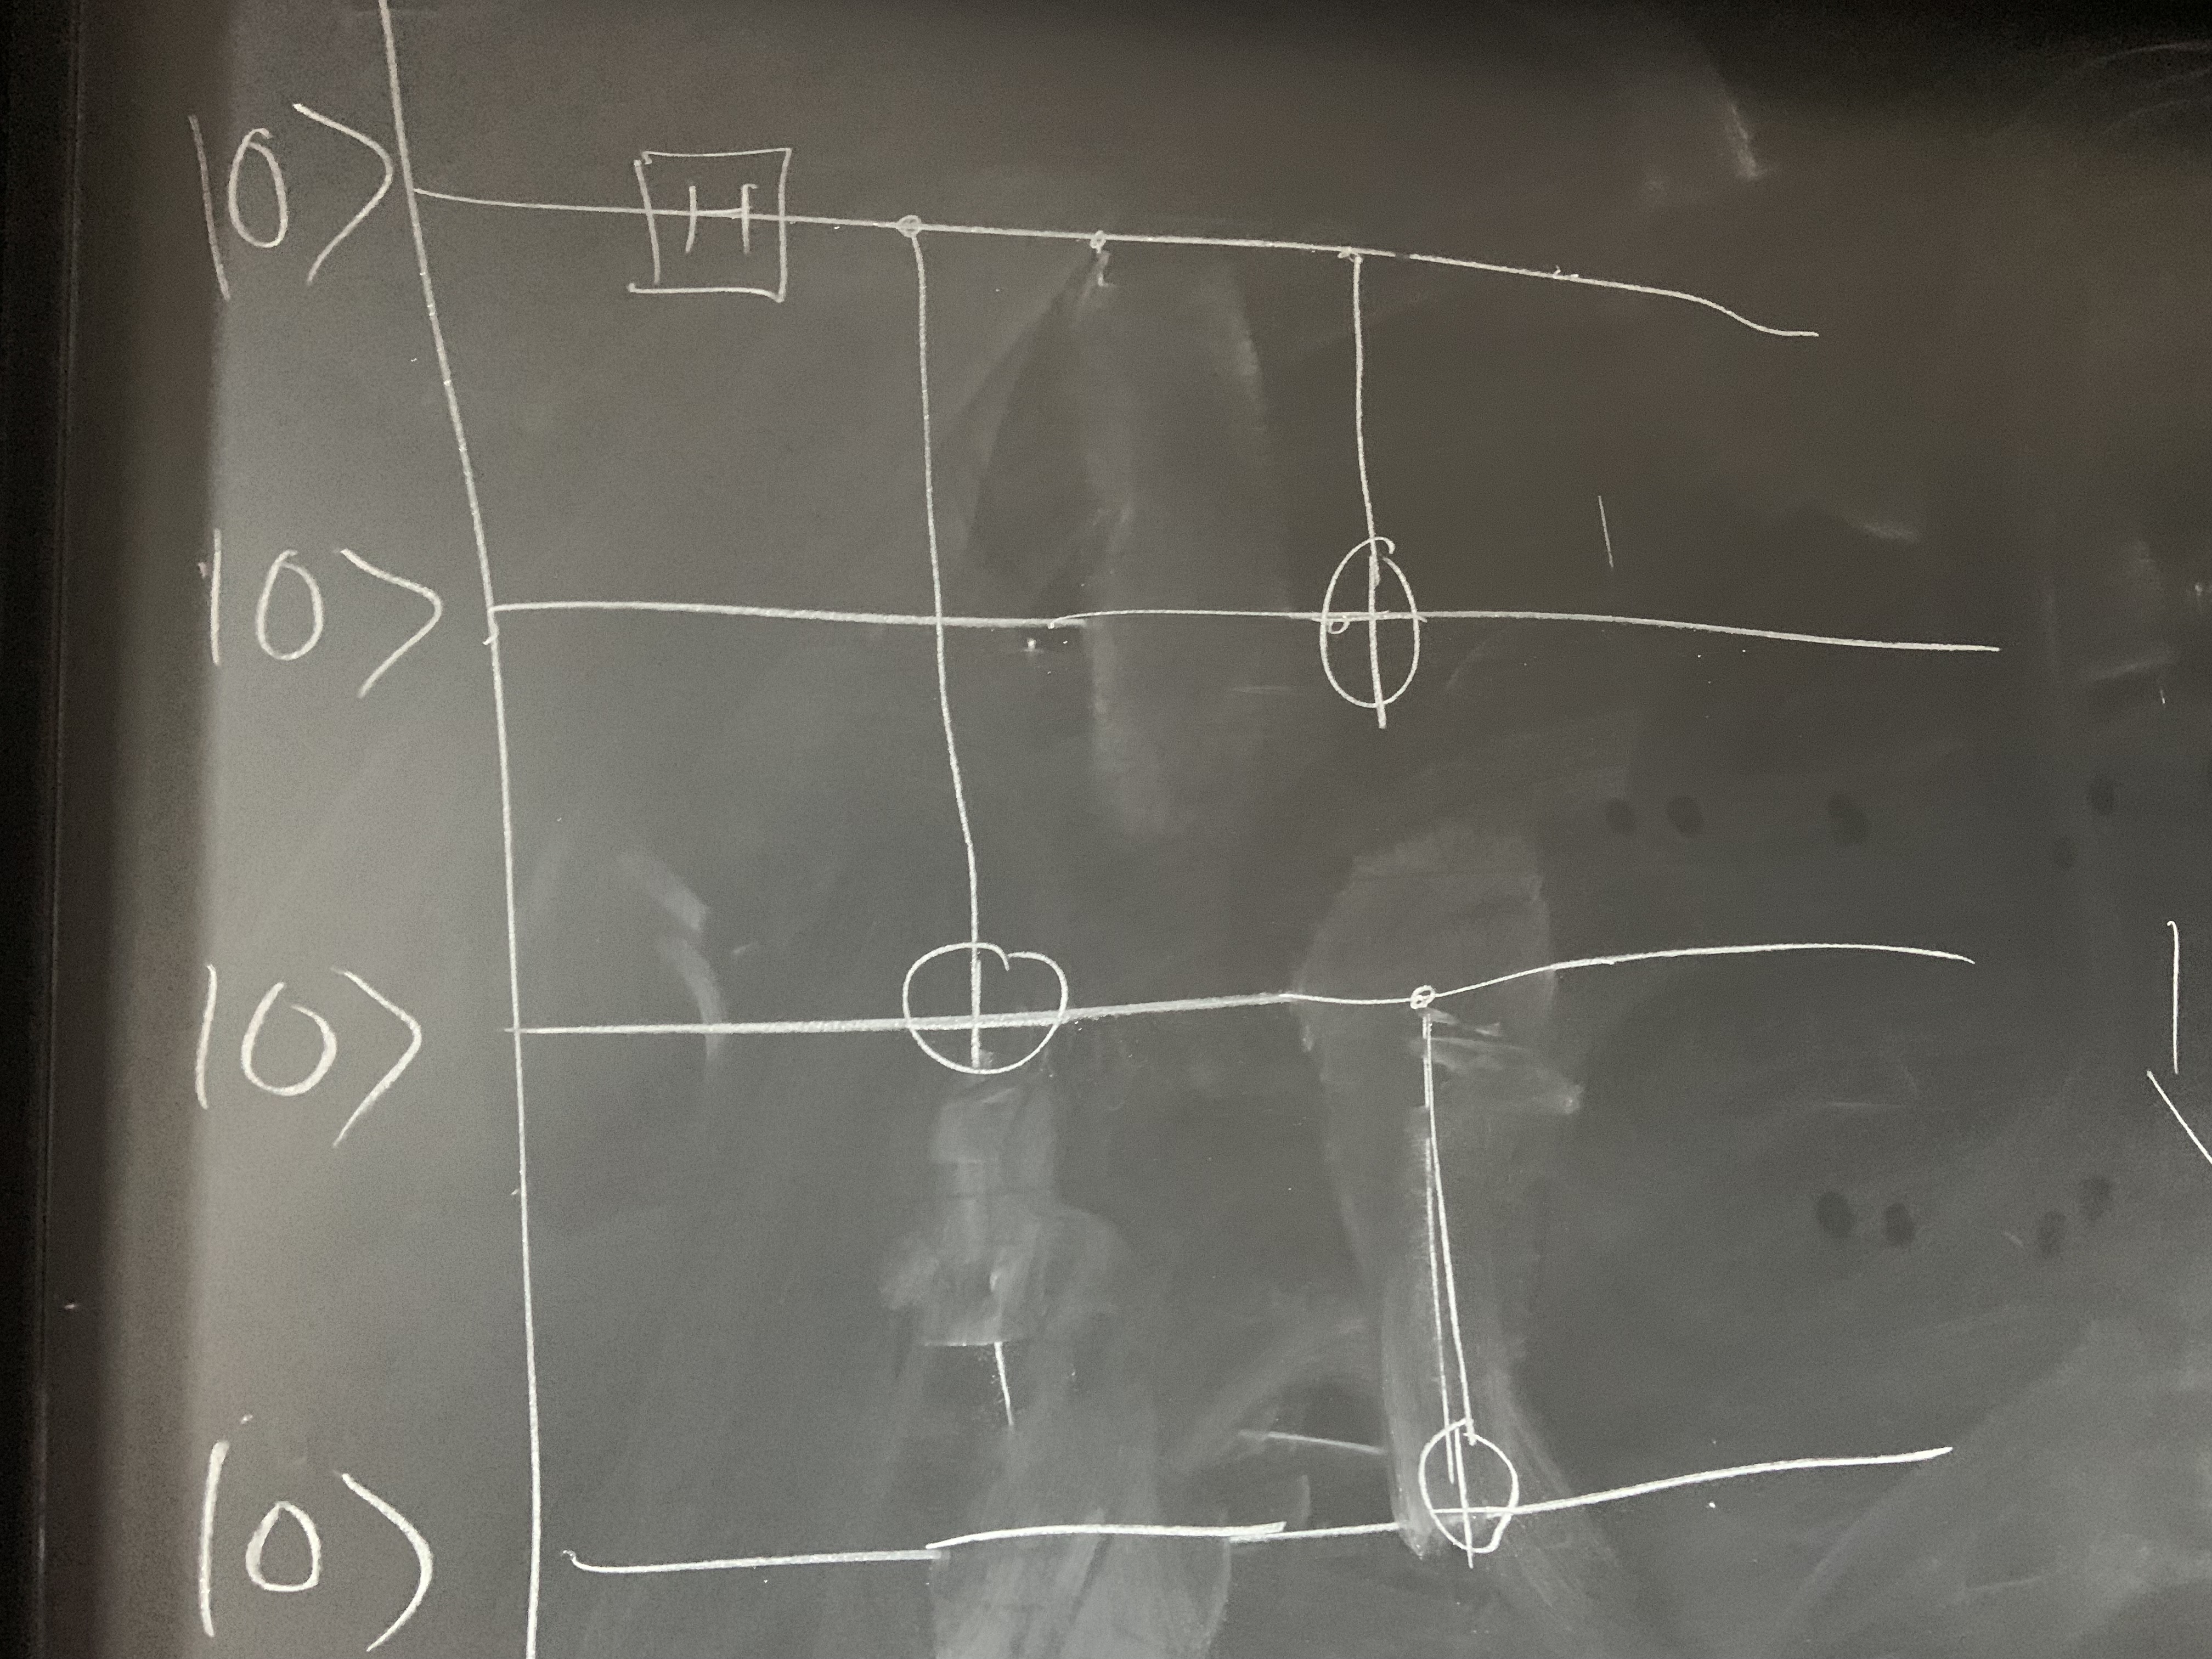 |0⟩ H
|0⟩
|0⟩
|0⟩